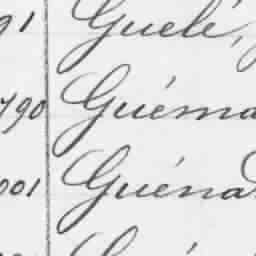 91 Guelé,
790 Guéma
001 Guéna